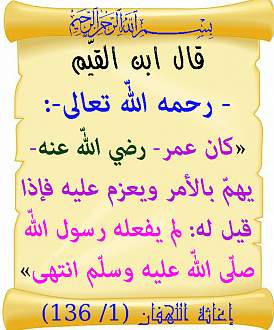 بسم الله الرحمن الرحيم
قال ابن القيّم
- رحمه الله تعالى-:
«كان عمر- رضي الله عنه-
يهمّ بالأمر ويعزم عليه فإذا
قيل له: لم يفعله رسول الله
صلّى الله عليه وسلّم انتهى»
إغاثة اللهفان (1/ 136)